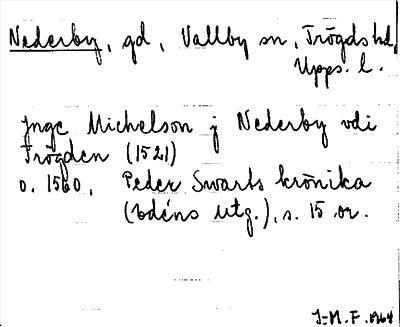 Nederby, gd, Vallby sn, Trögds hd,
Upps. l.
Inge Michelson j Nederby vdi
Trögden (1521)
o. 1560, Peder Swarts krönika
(Edéns utg.), s. 15 or.
I-M. F. 1964